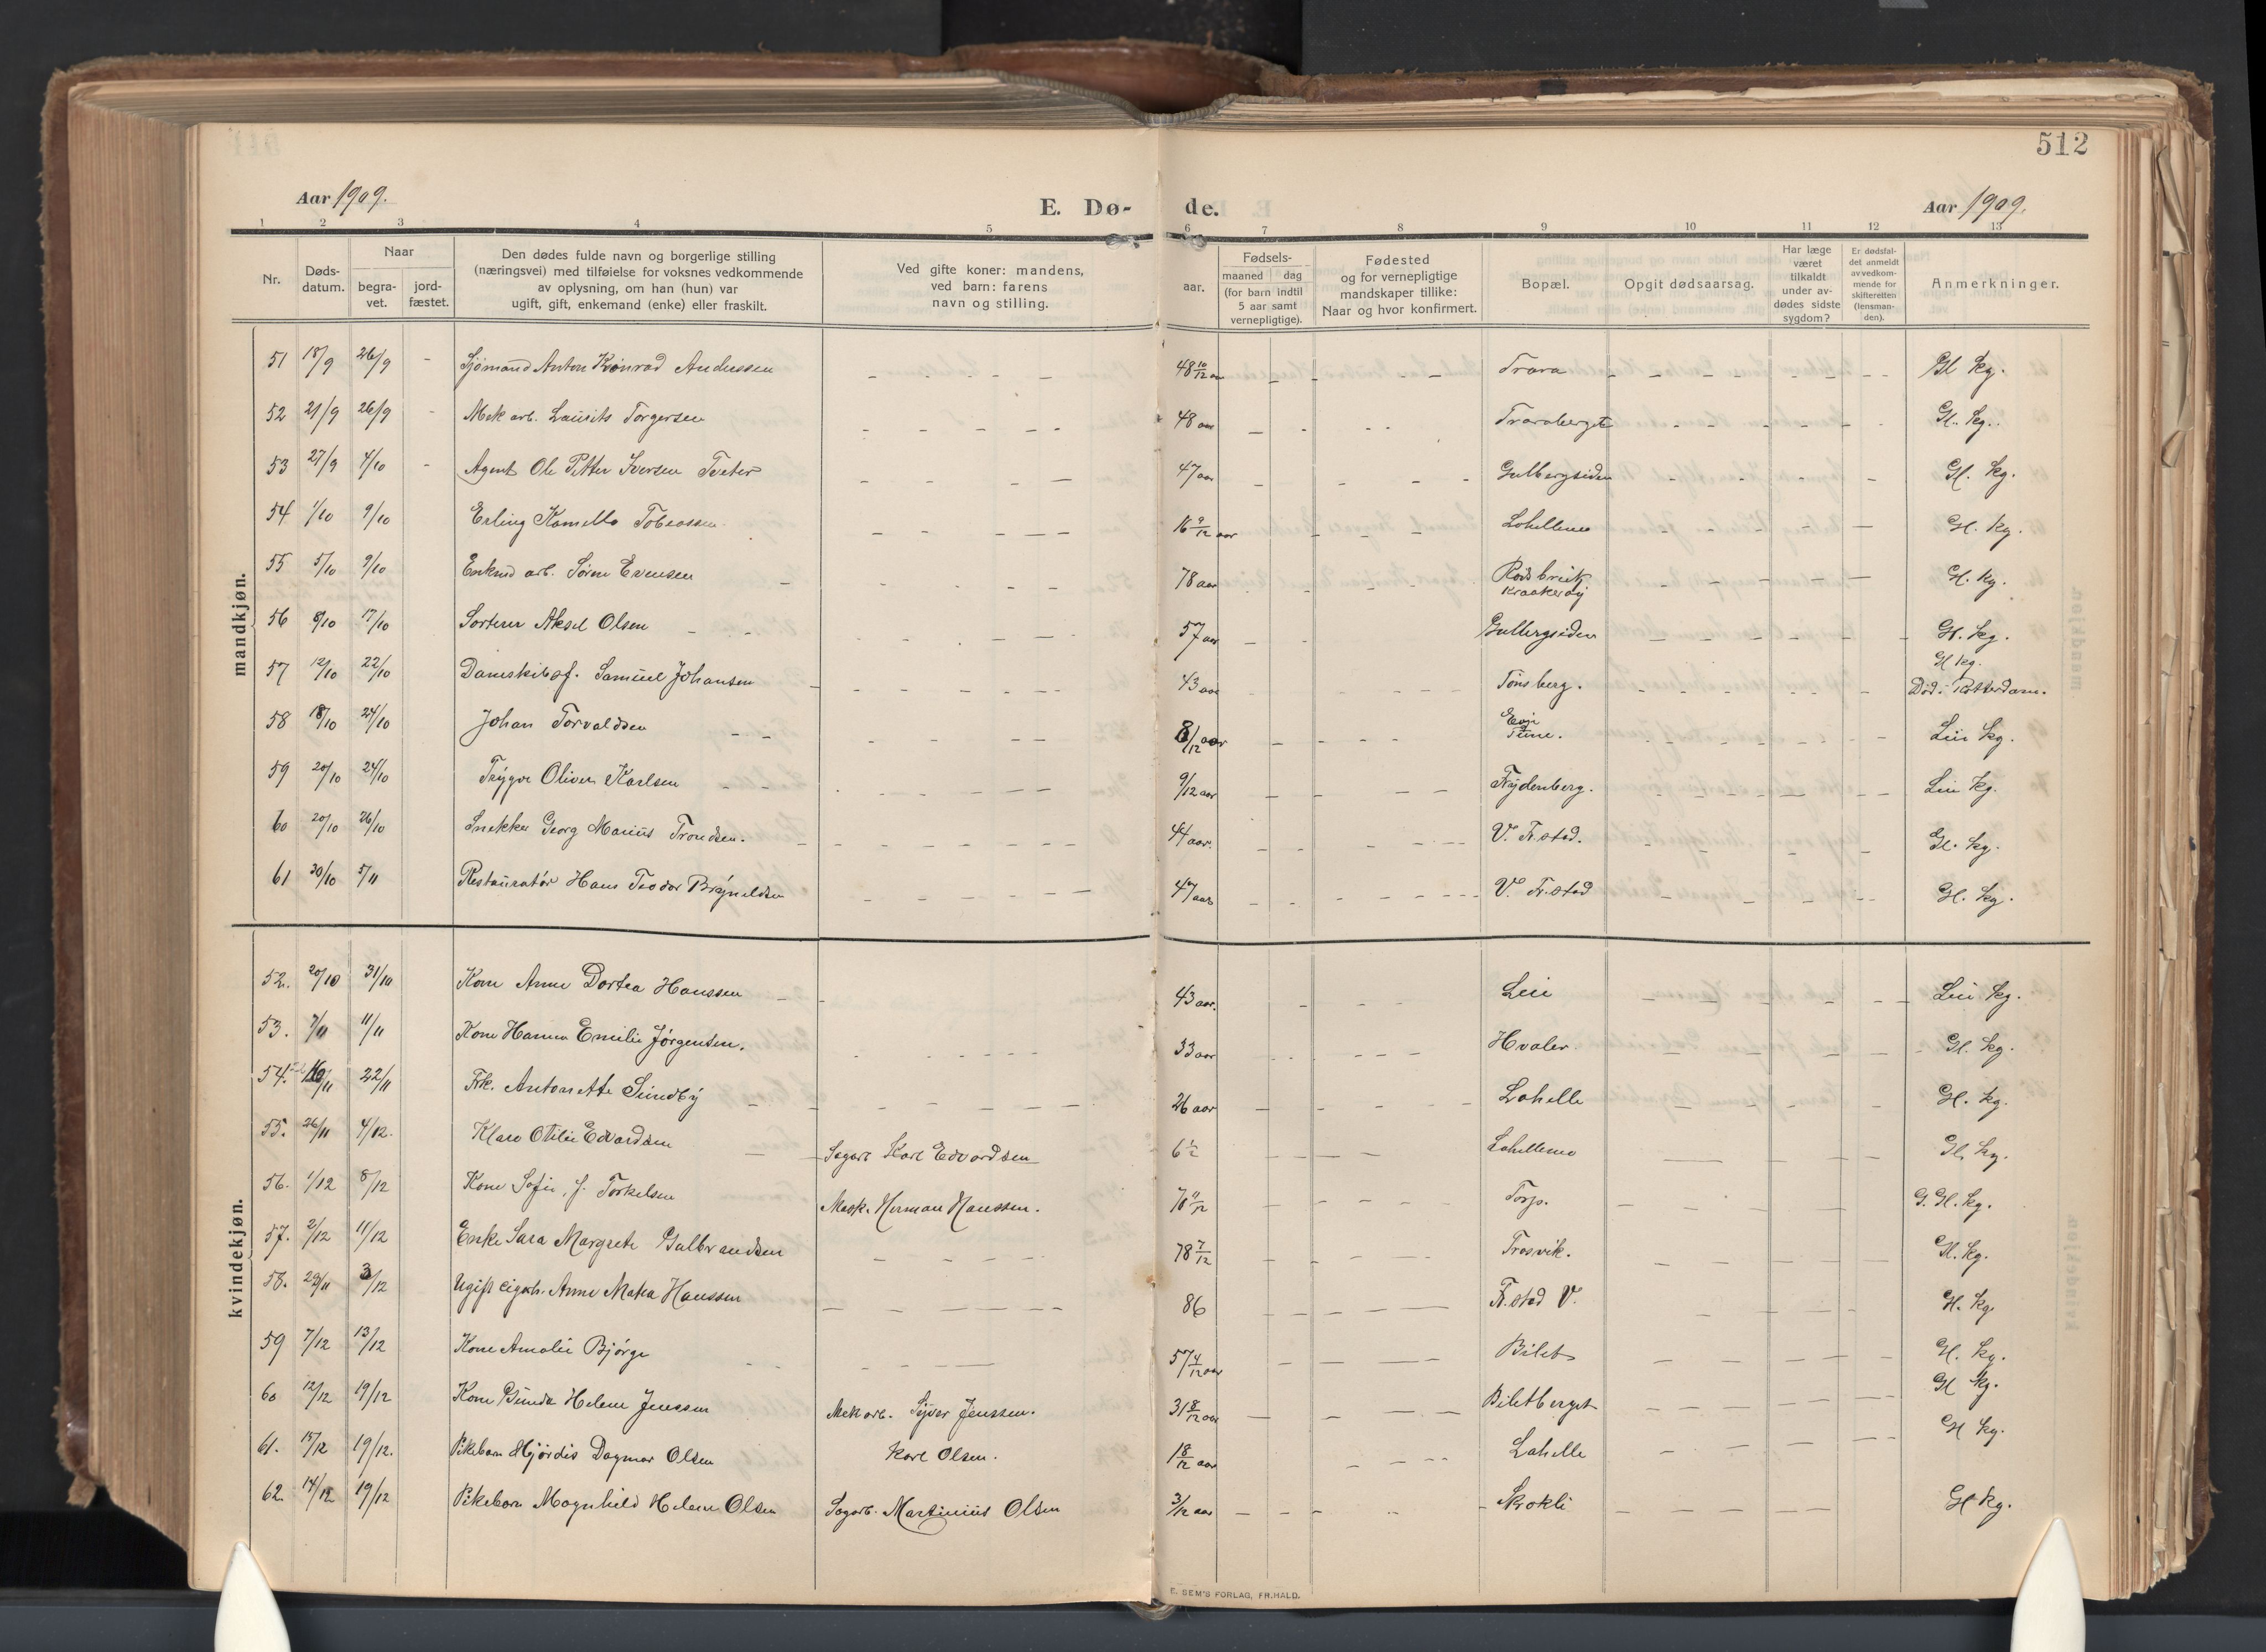 512
Aar 1909.
E. Dø- de.
Aar 1909.
1 2 3 4 5 6 7 8 9 10 11 12 13
Nr.
Døds-
datum.
Naar
begra-
vet.
jord-
fæstet.
Den dødes fulde navn og borgerlige stilling
(næringsvei) med tilføielse for voksnes vedkommende
av oplysning, om han (hun) var
ugift, gift, enkemand (enke) eller fraskilt.
Ved gifte koner: mandens,
ved barn: farens
navn og stilling.
aar.
Fødsels-
maaned dag
(for barn indtil
5 aar samt
vernepligtige).
Fødested
og for vernepligtige
mandskaper tillike:
Naar og hvor konfirmert.
Bopæl.
Opgit dødsaarsag.
Har læge
været
tilkaldt
under av-
dødes sidste
sygdom?
Er dødsfal-
det anmeldt
av vedkom-
mende for
skifteretten
(lensman-
den).
Anmerkninger.
mandkjøn.
51 18/9 26/9 - Sjømand Anton Konrad Anderssen 48 10/12 aar Trara Gl kg.
52 21/9 26/9 - Mek arb. Laurits Torgersen 48 aar Traraberget Gl. kg.
53 27/9 4/10 - Agent Ole Petter Iversen Tveter 47 aar Gulbergsiden Gl. kg.
54 1/10 9/10 Erling Kamillo Tobiassen 16 9/12 aar Lahellemo Gl. kg.
55 5/10 9/10 Enkmd arb. Søren Evensen 78 aar Rødsbrük Kraakerøy Gl. kg.
56 8/10 17/10 Sorterer Aksel Olsen 57 aar Gulbergsiden Gl. kg.
57 12/10 22/10 Damskibsf. Samuel Johansen 43 aar Tønsberg. Gl kg. Død i Rotterdam.
58 18/10 24/10 Johan Torvaldsen 8/12 aar Evje Tune. Leie kg.
59 20/10 24/10 Trygve Oliver Karlsen 9/12 aar Frydenberg. Leie kg.
60 20/10 26/10 Snekker Georg Marius Trondsen. 44 aar. V. Fr.stad. Gl. kg.
61 30/10 5/11 Restauratør Hans Teodor Brynildsen 47 aar V. Fr.stad Gl. kg.
kvindekjøn.
52. 20/10 31/10 Kone Anne Dortea Hanssen 43 aar. Leie Leie kg.
53. 7/11 11/11 Kone Hanna Emilie Jørgensen. 33 aar Hvaler. Gl. kg.
54. 16/11 22/11 Frk. Antonette Sundby 26 aar Lahelle Gl. kg.
55. 26/11 4/12. Klara Otilie Edvardsen Sagarb Karl Edvardsen 6 1/2 Lahellemo Gl. kg.
56. 1/12 8/12 Kone Sofie, J. Torkelsen Mask. Herman Hanssen. 70 11/12 Torp. G. Gl. kg.
57. 2/12 11/12 Enke Sara Margrete Gulbrandsen 78 7/12 Trosvik. Gl. kg.
58. 29/11 3/12 Ugift eigsh. Anne Matea Hanssen 86 Fr.stad V. Gl. kg.
59 7/12 13/12 Kone Amalie Bjørge 57 4/12 aar Bilet Gl. kg.
60 12/12 19/12 Kone Gunda Helene Jenssen Mek arb. Syver Jenssen. 31 8/12 aar Biletberget Gl kg.
61. 15/12 19/12. Pikebarn Hjørdis Dagmar Olsen Karl Olsen. 1 8/12 aar Lahelle Gl kg.
62. 14/12 19/12 Pikebarn Magnhild Helene Olsen Sagarb. Martinius Olsen 3/12 aar Skokli Gl kg.
E. SEM'S FORLAG, FR.HALD.